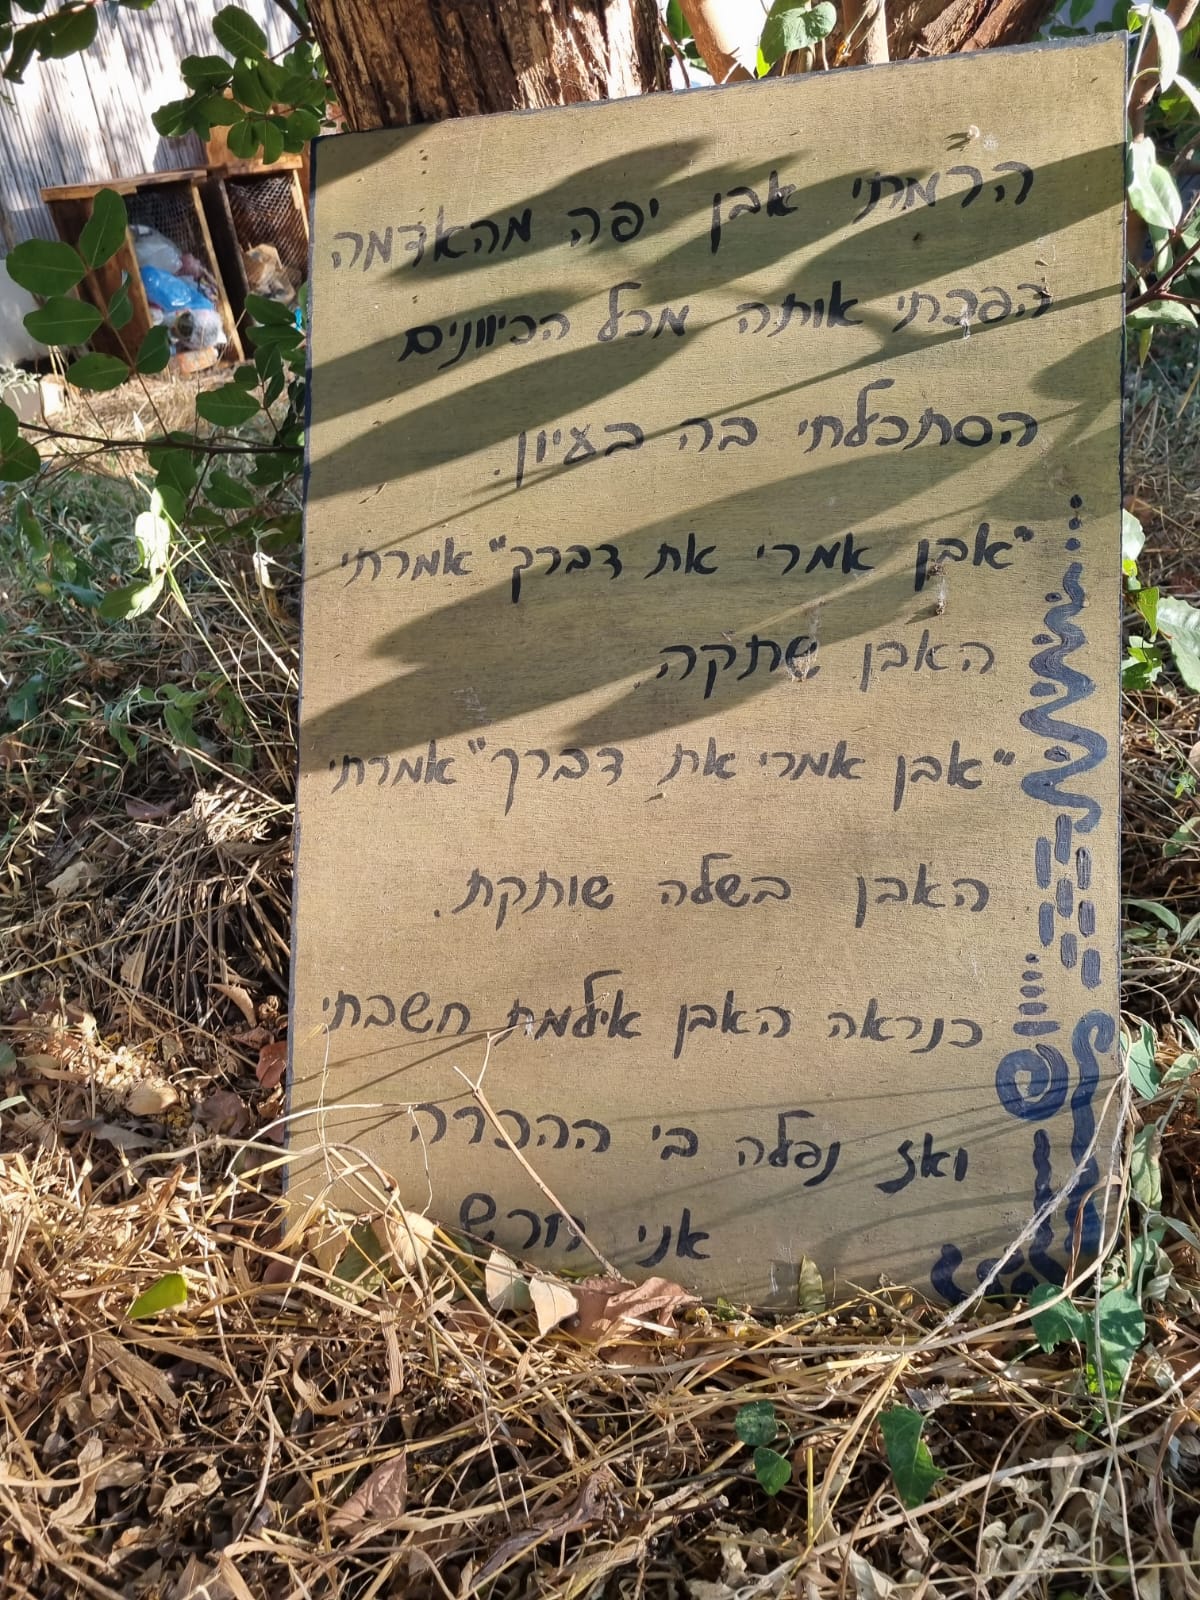 הרמתי אבן יפה מהאדמה
הפכתי אותה מכל הכיוונים
הסתכלתי בה בעיון.
"אבן אמרי את דברך" אמרתי
האבן שתקה.
"אבן אמרי את דברך" אמרתי
האבן בשלה שותקת.
כנראה האבן אילמת חשבתי
ואז נפלה בי ההכרה
אני חרש